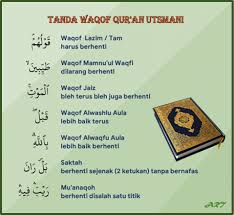 TANDA WAQOF QUR'AN UTSMANI
قَوْلُهُمْ
Waqof Lazim / Tam
harus berhenti
طَيِّبِينَ
Waqof Mamnu'ul Waqfi
dilarang berhenti
الْمَوْتِ
Waqof Jaiz
bleh terus bleh juga berhenti
قَبْلُ
Waqof Alwashlu Aula
lebih baik terus
بِاللَّهِ
Waqof Alwaqfu Aula
lebih baik berhenti
بَلْ رَانَ
Saktah
berhenti sejenak (2 ketukan) tanpa bernafas
رَيْبَ فِيهِ
Mu'anaqoh
berhenti disalah satu titik